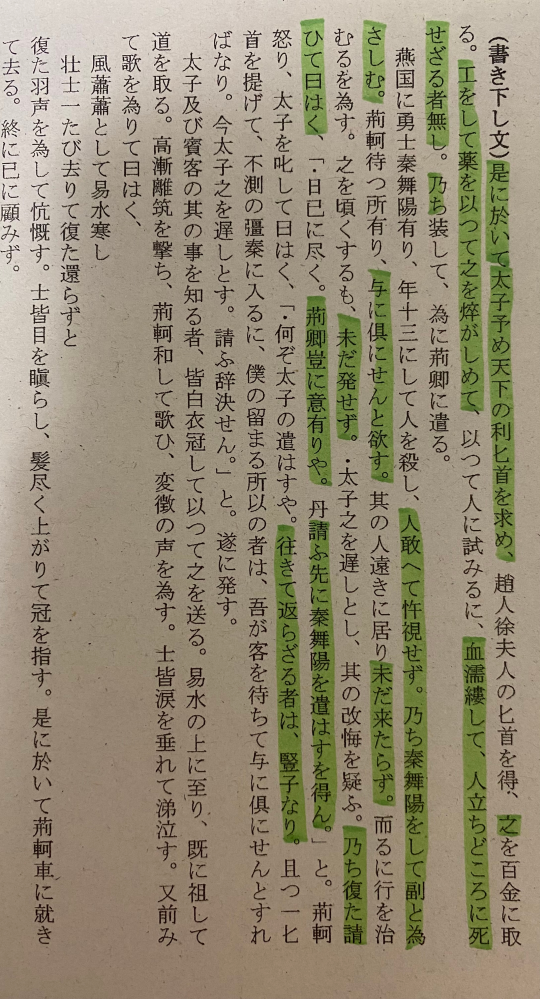 (書き下し文)是に於いて太子予め天下の利匕首を求め、趙人徐夫人の匕首を得、之を百金に取
る。工をして薬を以つて之を焠がしめて、以つて人に試みるに、血濡縷して、人立ちどころに死
せざる者無し。乃ち装して、為に荊卿に遣る。
燕国に勇士秦舞陽有り、年十三にして人を殺し、人敢へて忤視せず。乃ち秦舞陽をして副と為
さしむ。荊軻待つ所有り、与に俱にせんと欲す。其の人遠きに居り未だ来たらず。而るに行を治
むるを為す。之を頃くするも、未だ発せず。・太子之を遅しとし、其の改悔を疑ふ。乃ち復た請
ひて曰はく、「・日已に尽く。荊卿豈に意有りや。丹請ふ先に秦舞陽を遣はすを得ん。」と。荊軻
怒り、太子を叱して曰はく、「・何ぞ太子の遣はすや。往きて返らざる者は、豎子なり。且つ一匕
首を提げて、不測の彊秦に入るに、僕の留まる所以の者は、吾が客を待ちて与に俱にせんとすれ
ばなり。今太子之を遅しとす。請ふ辞決せん。」と。遂に発す。
太子及び賓客の其の事を知る者、皆白衣冠して以つて之を送る。易水の上に至り、既に祖して
道を取る。高漸離筑を撃ち、荊軻和して歌ひ、変徴の声を為す。士皆涙を垂れて涕泣す。又前み
て歌を為りて曰はく、
風蕭蕭として易水寒し
壮士一たび去りて復た還らずと
復た羽声を為して忼慨す。士皆目を瞋らし、髪尽く上がりて冠を指す。是に於いて荊軻車に就き
て去る。終に已に顧みず。